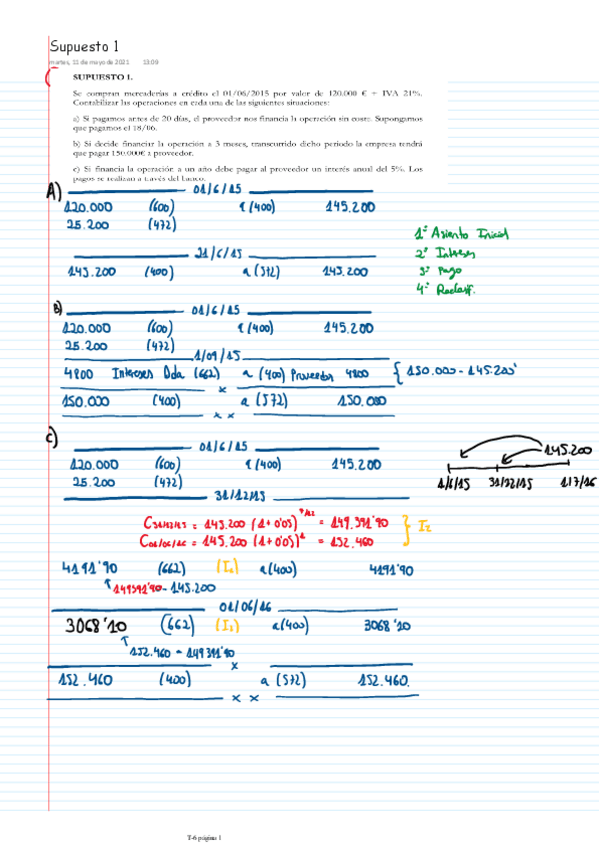 Supuesto 1
martes, 11 de mayo de 2021 13:09
SUPUESTO 1.
Se compran mercaderías a crédito el 01/06/2015 por valor de 120.000 € + IVA 21%.
Contabilizar las operaciones en cada una de las siguientes situaciones:
a) Si pagamos antes de 20 días, el proveedor nos financia la operación sin coste. Supongamos
que pagamos el 18/06.
b) Si decide financiar la operación a 3 meses, transcurrido dicho periodo la empresa tendrá
que pagar 150.000€ a proveedor.
c) Si financia la operación a un año debe pagar al proveedor un interés anual del 5%. Los
pagos se realizan a través del banco.
A) 01/6/15
120.000 (600) a (400) 145.200
25.200 (472)
1º Asiento Inicial
2º Intereses
3º Pago
4º Reclasif.
21/6/15
145.200 (400) a (572) 145.200
B) 01/6/15
120.000 (600) a (400) 145.200
25.200 (472)
1/09/15
4800 Intereses Dda (662) a (400) Proveedor 4800 { 150.000 - 145.200'
x
150.000 (400) a (572) 150.000
x x
C) 01/6/15
120.000 (600) a (400) 145.200
25.200 (472)
145.200
1/6/15 31/12/15 1/7/16
31/12/15
C31/12/15 = 145.200 (1+0'05)^7/12 = 149.391'90
C01/06/16 = 145.200 (1+0'05)^1 = 152.460
} I2
4191'90 (662) (I1) a (400) 4191'90
149391'90 - 145.200
01/06/16
3068'10 (662) (I2) a (400) 3068'10
152.460 - 149391'90
x
152.460 (400) a (572) 152.460.
x x
T-6 página 1